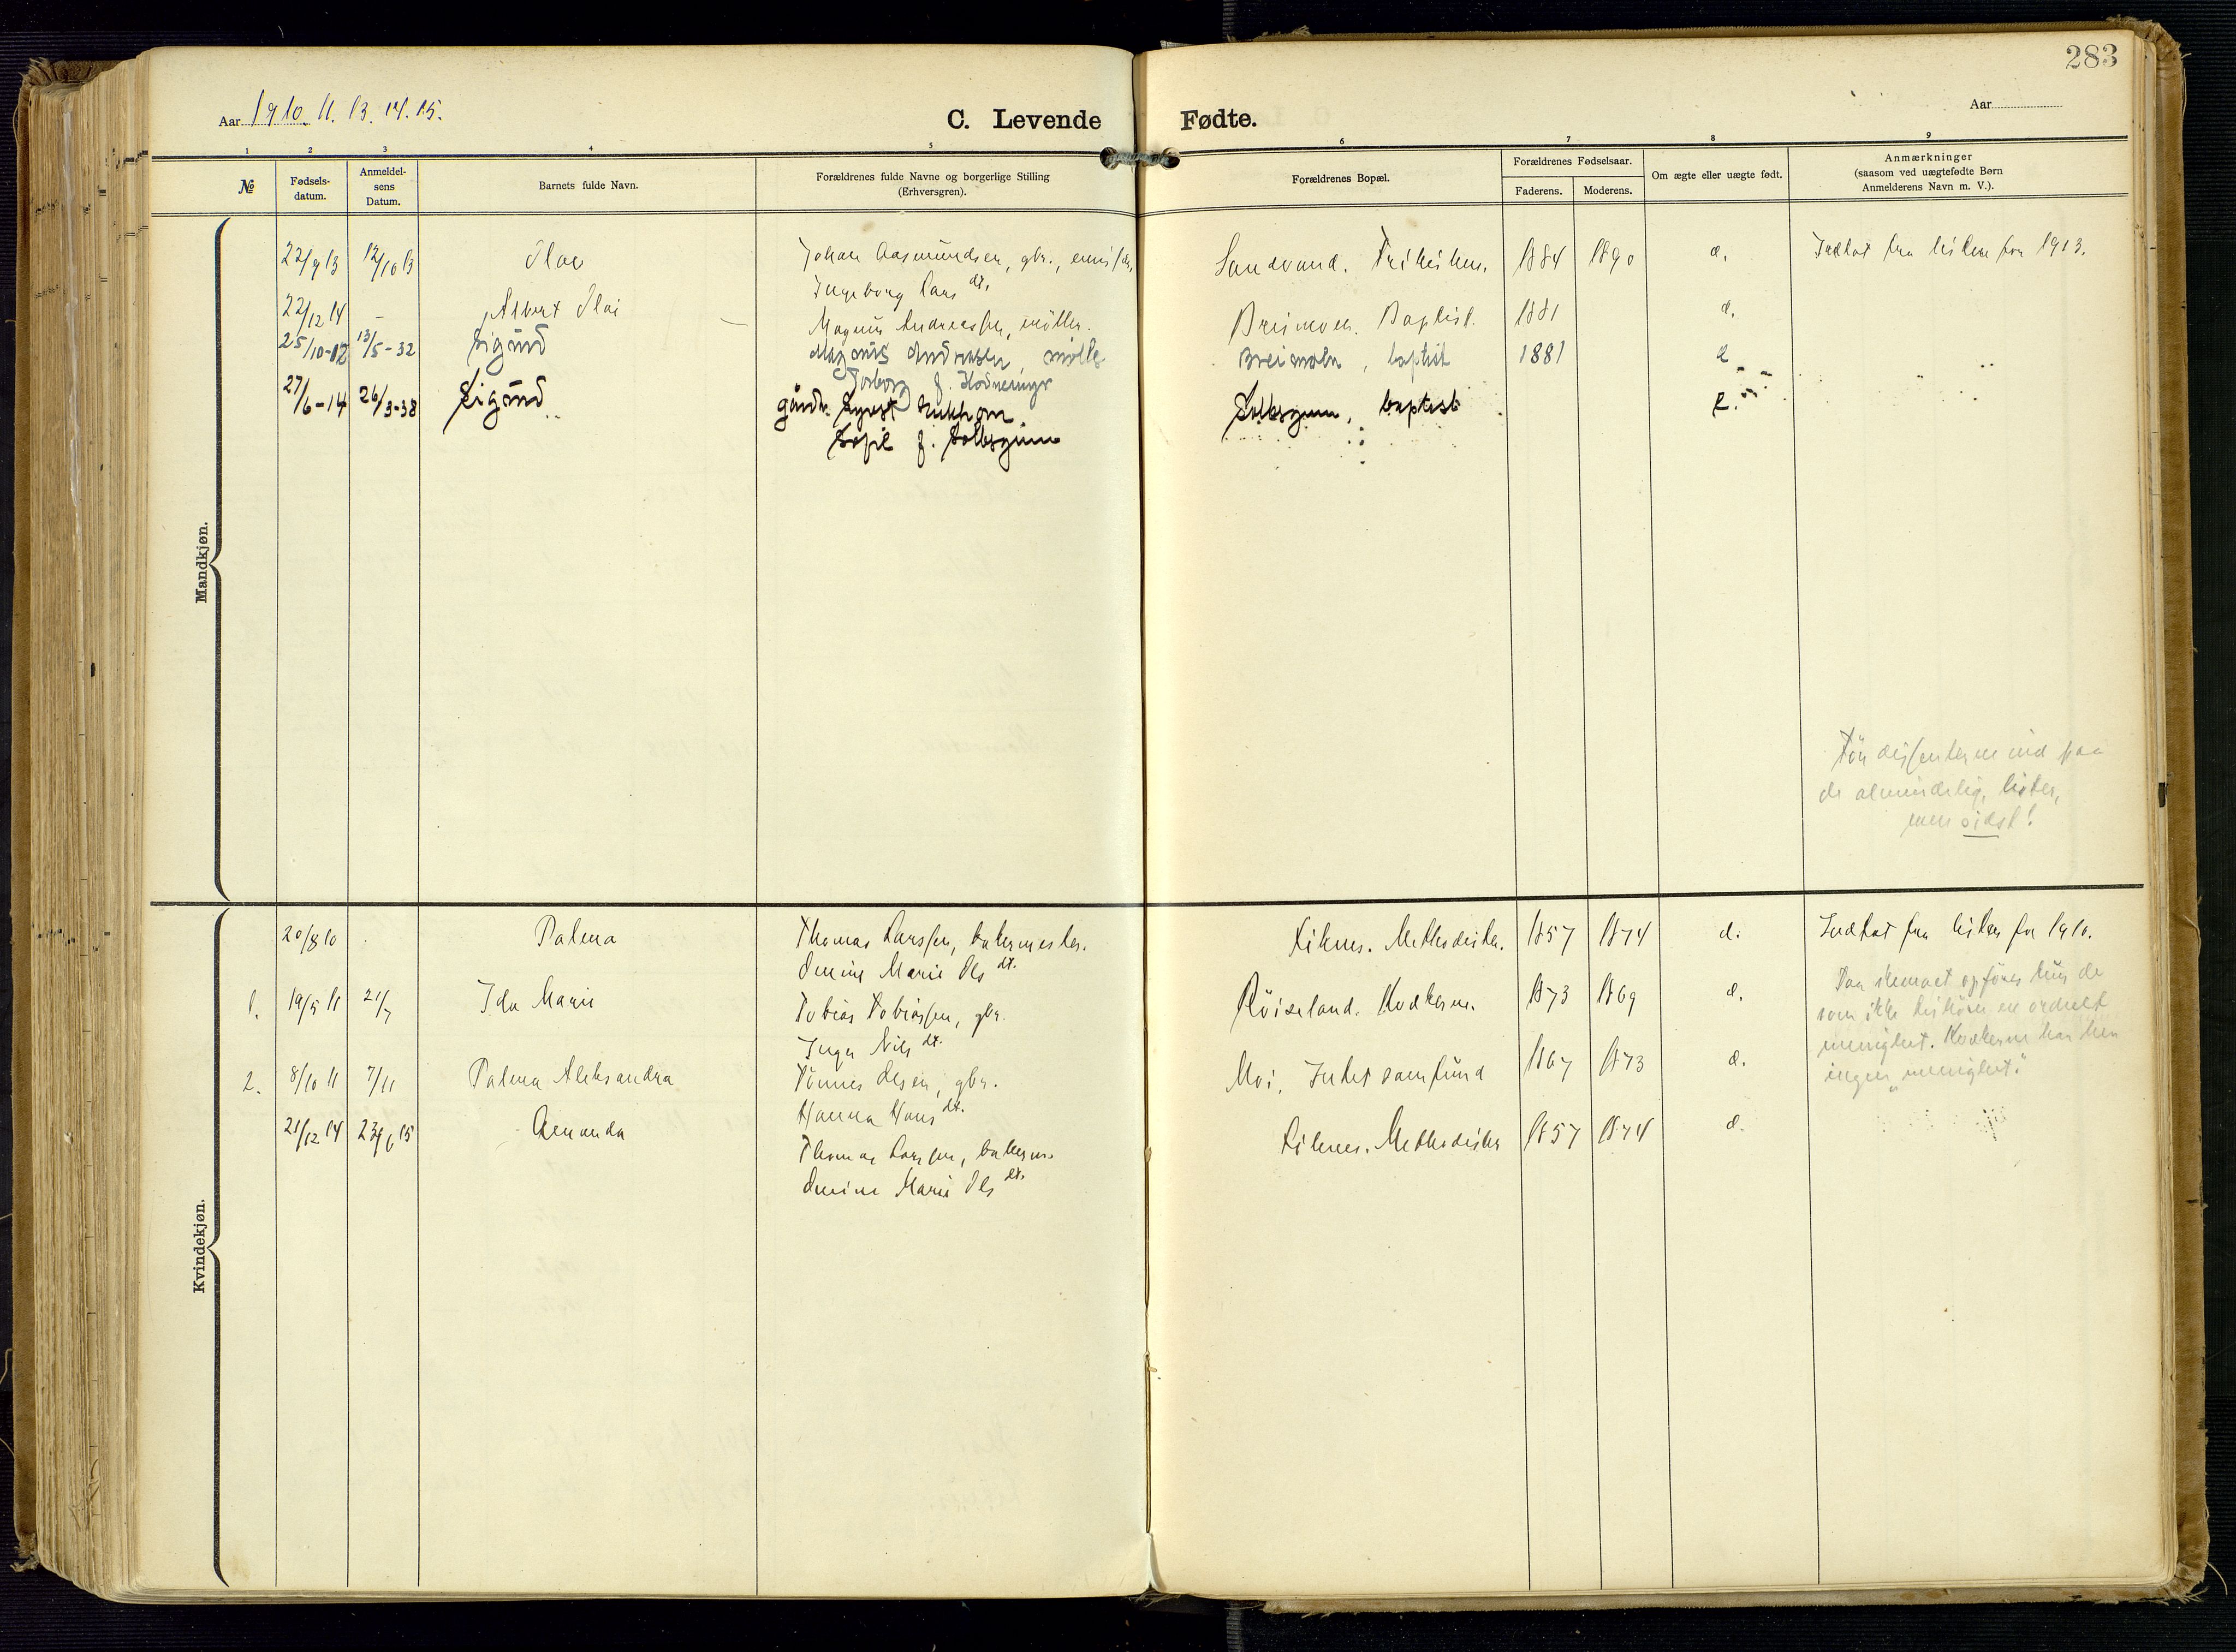 283
Aar 1910. 11. 13. 14. 15.
C. Levende Fødte.
Aar
1 2 3 4 5 6 7 8 9
№
Fødsels-
datum.
Anmeldel-
sens
Datum.
Barnets fulde Navn.
Forældrenes fulde Navne og borgerlige Stilling
(Erhversgren).
Forældrenes Bopæl.
Forældrenes Fødselsaar.
Faderens. Moderens.
Om ægte eller uægte født.
Anmærkninger
(saasom ved uægtefødte Børn
Anmelderens Navn m. V.).
Mandkjøn.
22/9 13 12/10 13 Olav Johan Aasmundsen, gbr., Sandvand. Frikirken. 1884 1890 æ. Indtat fra listen for 1913.
Ingeborg Lars dt.
22/12 14 - Albert Olai Magnus Andreassen, møller. Breimoen. Baptist. 1881 æ.
25/10-12 13/5-32 Sigund Magnus Andreasen, mølle Breimoen, baptist 1881 e
Torborg f.
27/6-14 26/3-38 Sigund gårdbr. Syvert Solbsgrunn, baptist e.
Sofie f. Solbsgrunn
Før dissenterne ind paa
de almindelig, lister,
men sidst!
Kvindekjøn.
20/8 10 Palma Thomas Larssen, bakermester. Liknes. Methodister. 1857 1874 æ. Indtat fra listen for 1910.
Omine Marie Ols dt.
1. 19/5 11 21/7 Ida Marie Tobias Tobiassen, gbr. Røiseland. Kvækerne. 1873 1869 æ.
Inga Nils dt.
2. 8/10 11 7/11 Palma Aleksandra Tønnes Olsen, gbr. Moi. Intet samfund 1867 1873 æ.
Hanna Hans dt.
21/12 14 23/6 15 Amanda Thomas Larssen, bakerm. Liknes. Methodister 1857 1874 æ.
Omine Marie Ols dt.
Paa skemaet opføres kun de
som ikke tilhører en ordnet
menighet. Kvækerne har her
ingen "menighet".